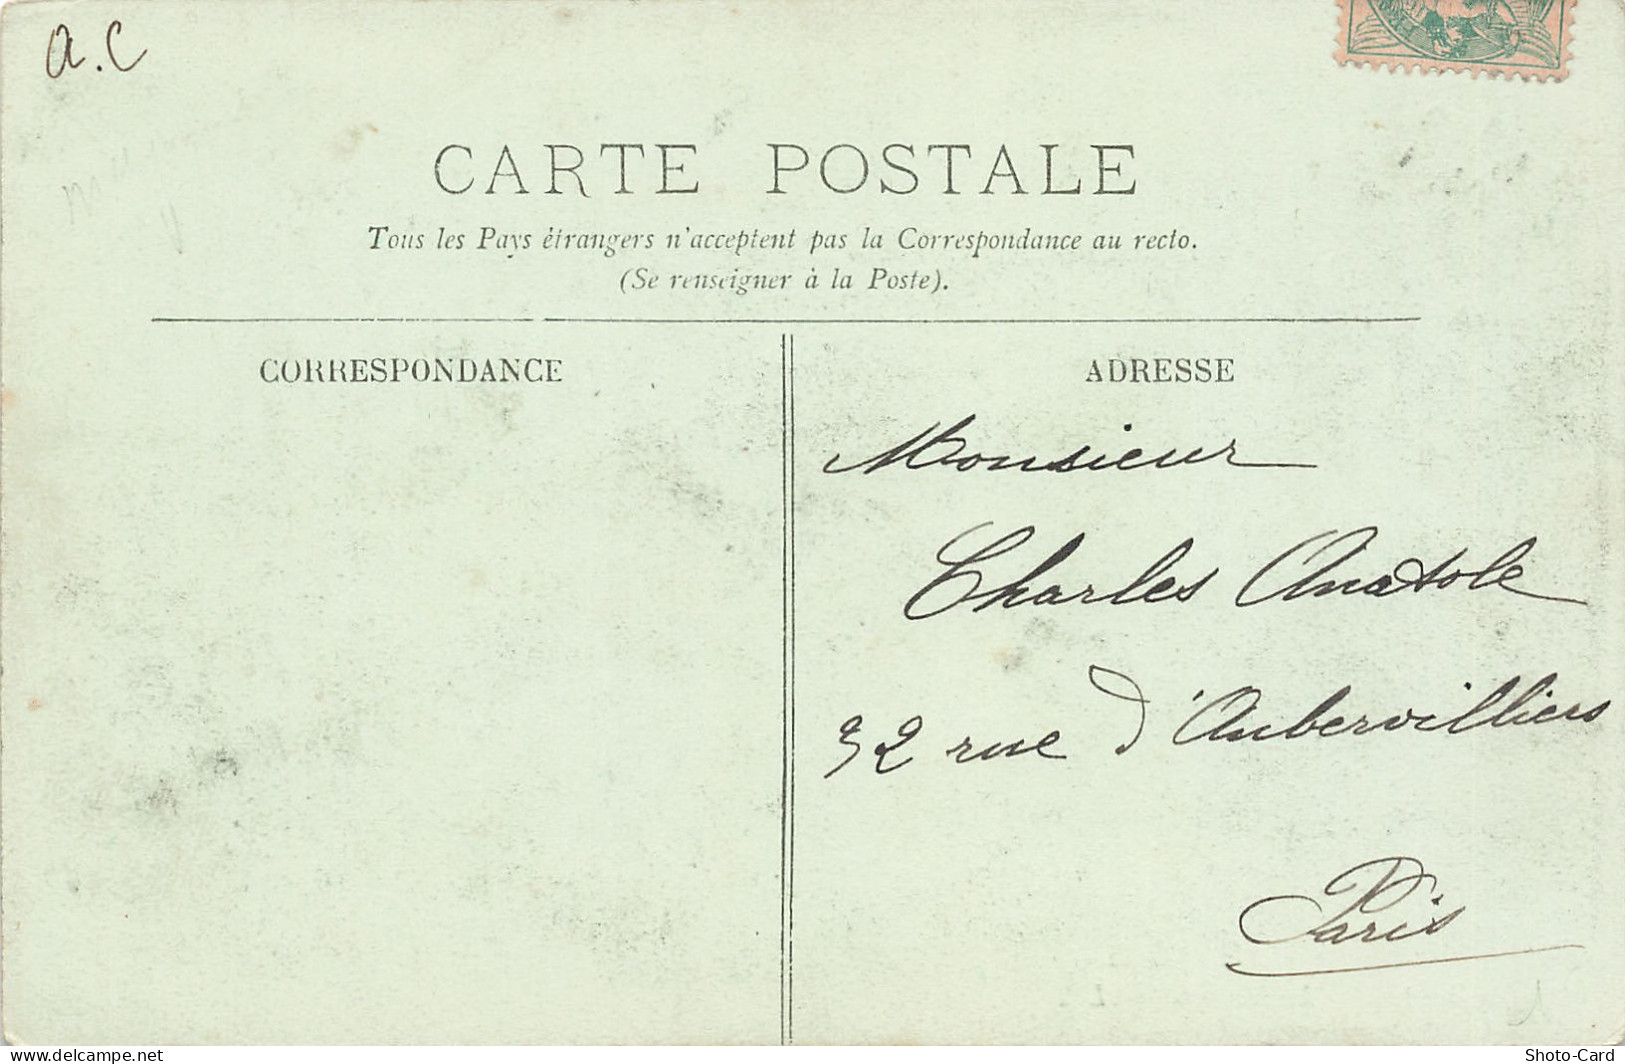 a.C
CARTE POSTALE
Tous les Pays étrangers n'acceptent pas la Correspondance au recto.
(Se renseigner à la Poste).
CORRESPONDANCE
ADRESSE
Monsieur
Charles Anatole
32 rue d'Aubervilliers
Paris
www.delcampe.net
Shoto-Card